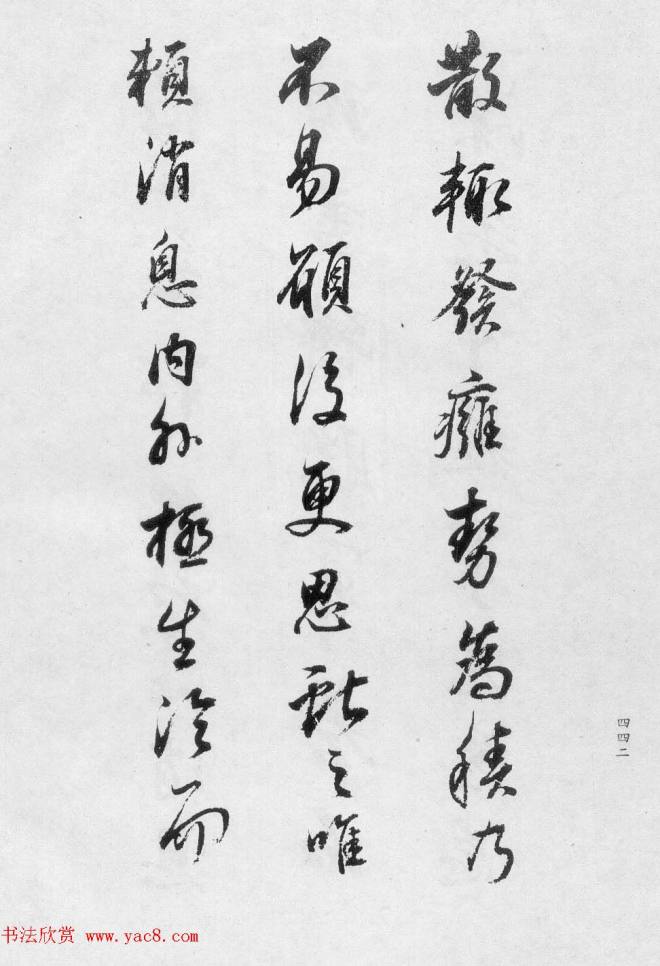 散輙發癰勢為積乃
不易願復更思獻之唯
賴消息内外極生冷而
四四二
书法欣赏 www.yac8.com